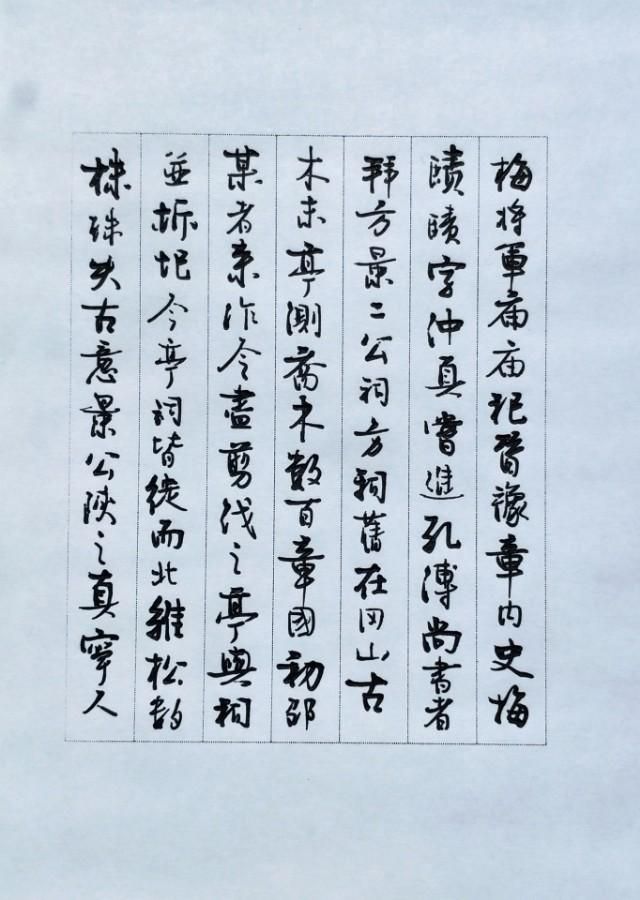 梅将軍庙庙祀晋豫章内史梅
賾賾字仲真嘗進孔溥尚書者
拜方景二公祠方祠舊在冈山古
木末亭測喬木数百章國初邵
某者来作令盡剪伐之亭與祠
並拆圮今亭祠皆徙而北雜松数
株殊失古意景公陝之真寧人